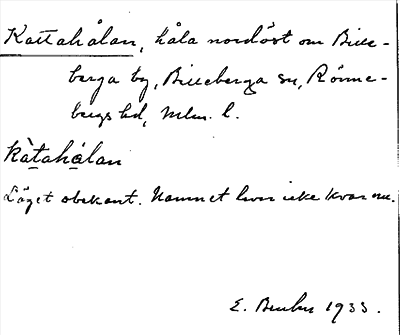 Kattahålan, håla nordöst om Bille-
berga by, Billeberga sn, Rönne-
bergs hd, Mlm. l.
kàtahålan
Läget obekant. Namnet lever icke kvar nu.
E. 1933.